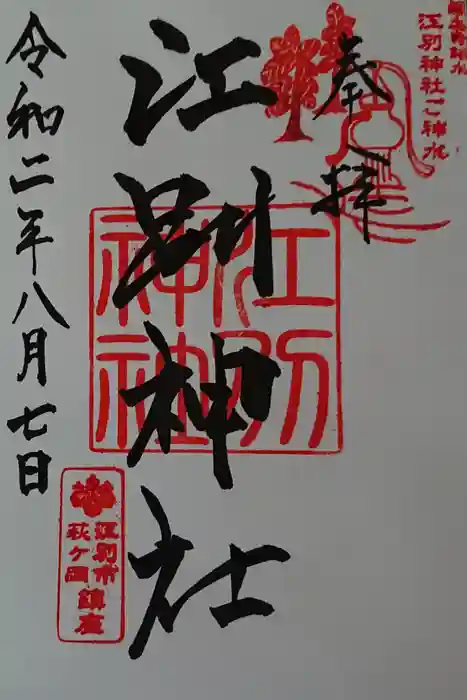 江別神社ご神水
奉拝
江別神社
江別神社
令和二年八月七日
江別市
萩ヶ岡鎮座